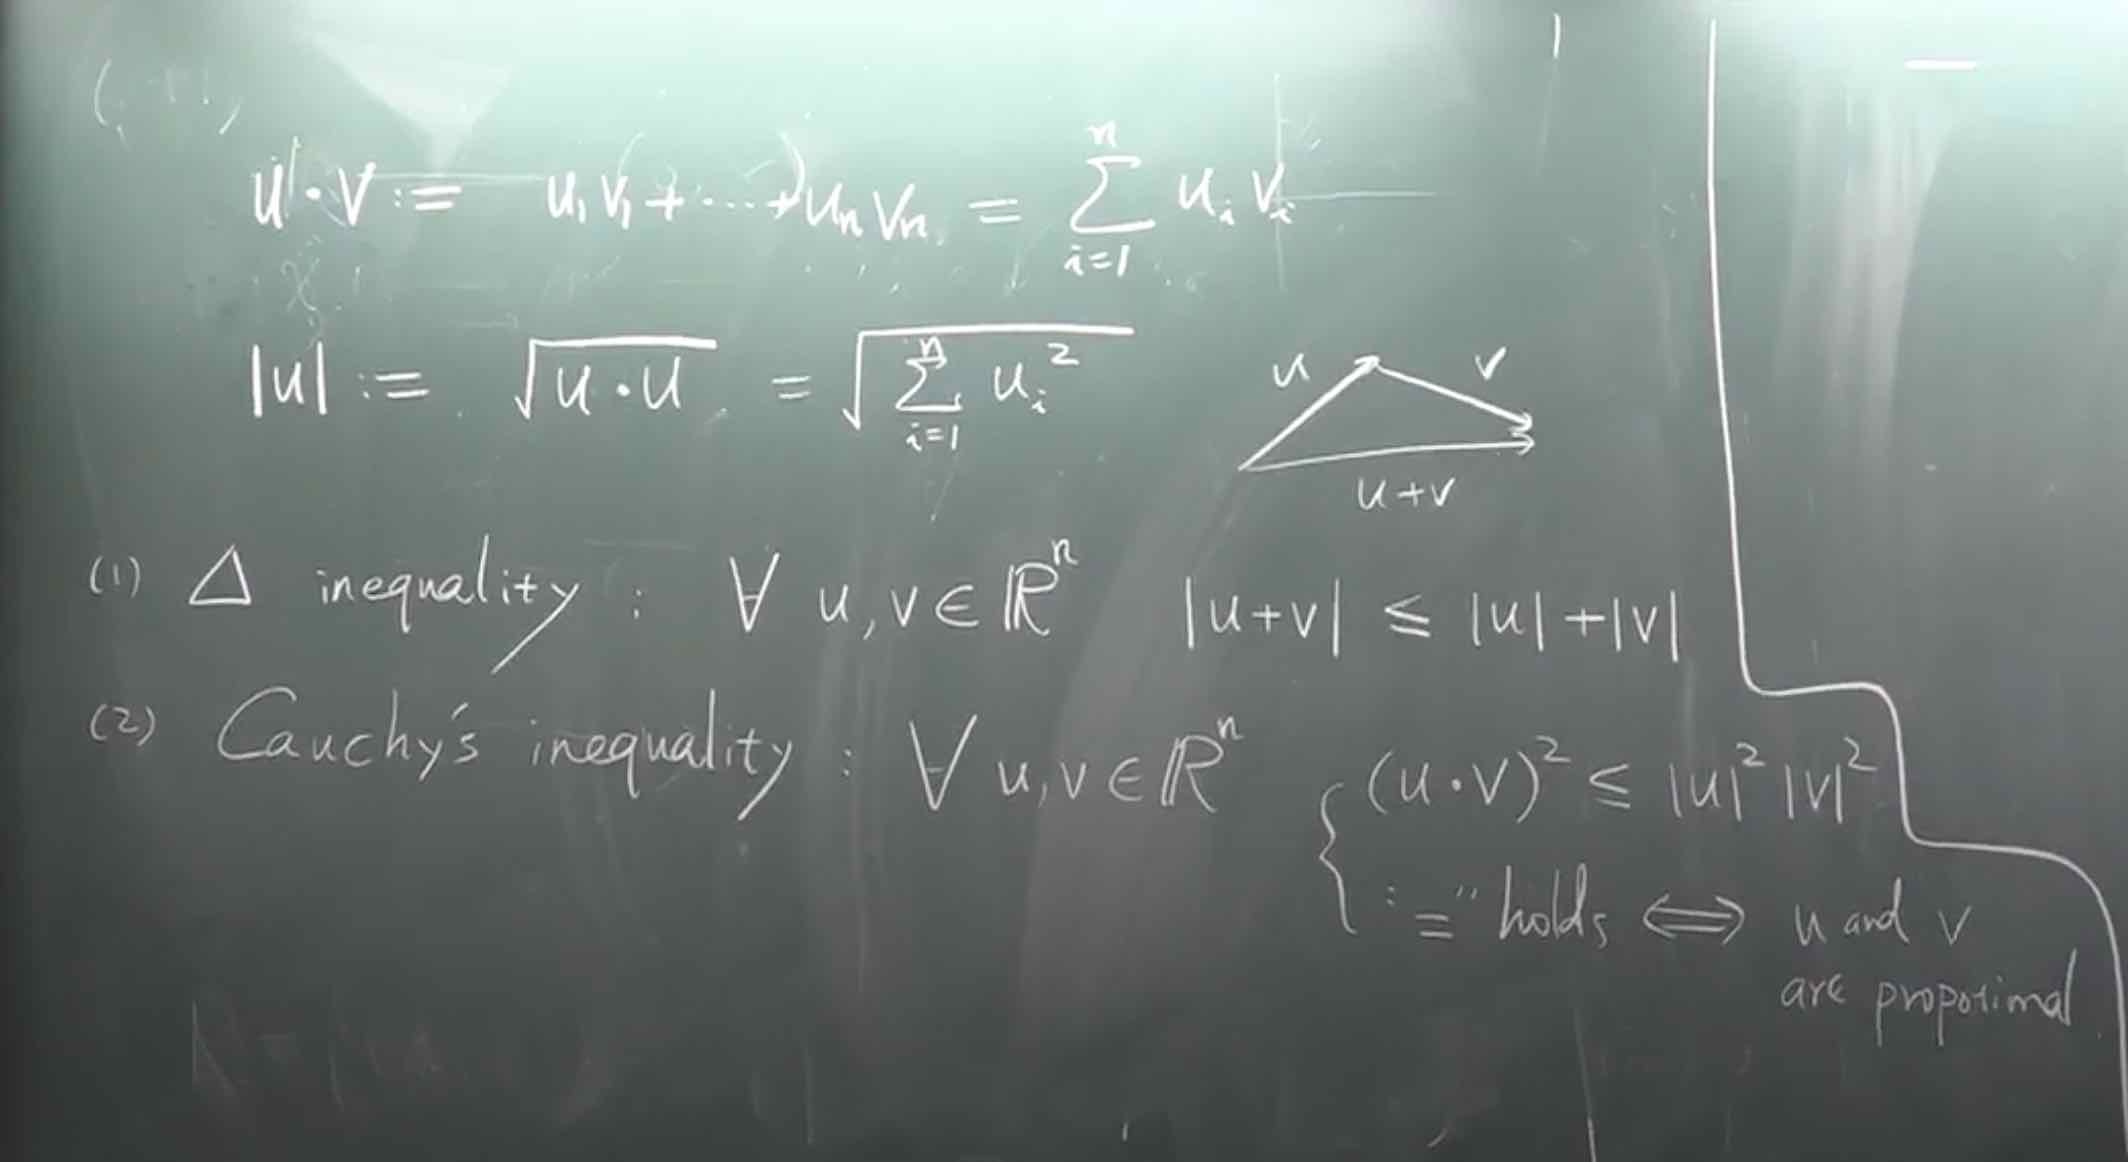 u · v := u₁v₁ + ··· + uₙvₙ = ∑ᵢ₌₁ⁿ uᵢvᵢ
|u| := √(u · u) = √(∑ᵢ₌₁ⁿ uᵢ²)
u v
u+v
(1) Δ inequality : ∀ u, v ∈ ℝⁿ |u+v| ≤ |u|+|v|
(2) Cauchy's inequality : ∀ u, v ∈ ℝⁿ { (u · v)² ≤ |u|² |v|²
"=" holds ⟺ u and v
are proportional